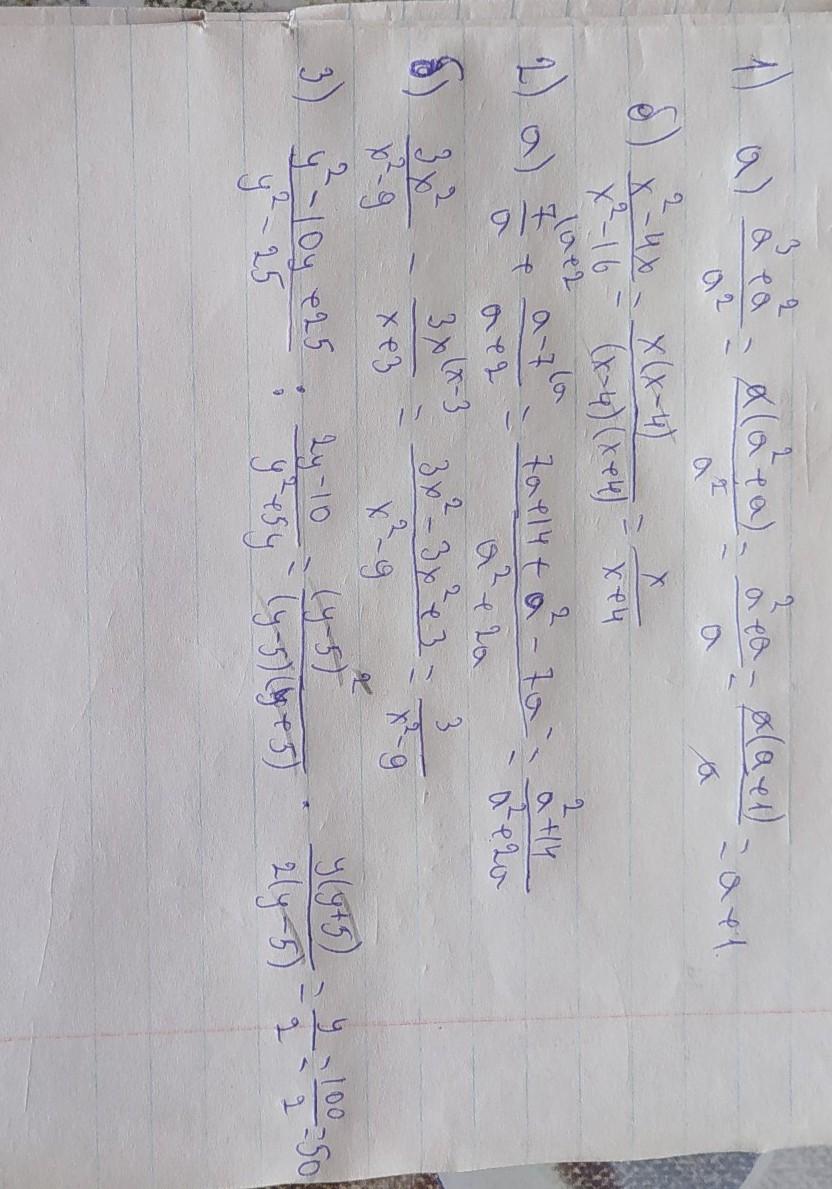 1) а) (a³+a²)/a² = a(a²+a)/a² = (a²+a)/a = a(a+1)/a = a+1.
б) (x²-4x)/(x²-16) = x(x-4)/((x-4)(x+4)) = x/(x+4)
2) а) 7/a (a+2 + (a-7)/(a+2) (a = (7a+14+a²-7a)/(a²+2a) = (a²+14)/(a²+2a)
б) 3x²/(x²-9) - 3x/(x+3) (x-3 = (3x²-3x²+3)/(x²-9) = 3/(x²-9)
3) (y²-10y+25)/(y²-25) : (2y-10)/(y²+5y) = (y-5)²/((y-5)(y+5)) · y(y+5)/(2(y-5)) = y/2 = 100/2 = 50